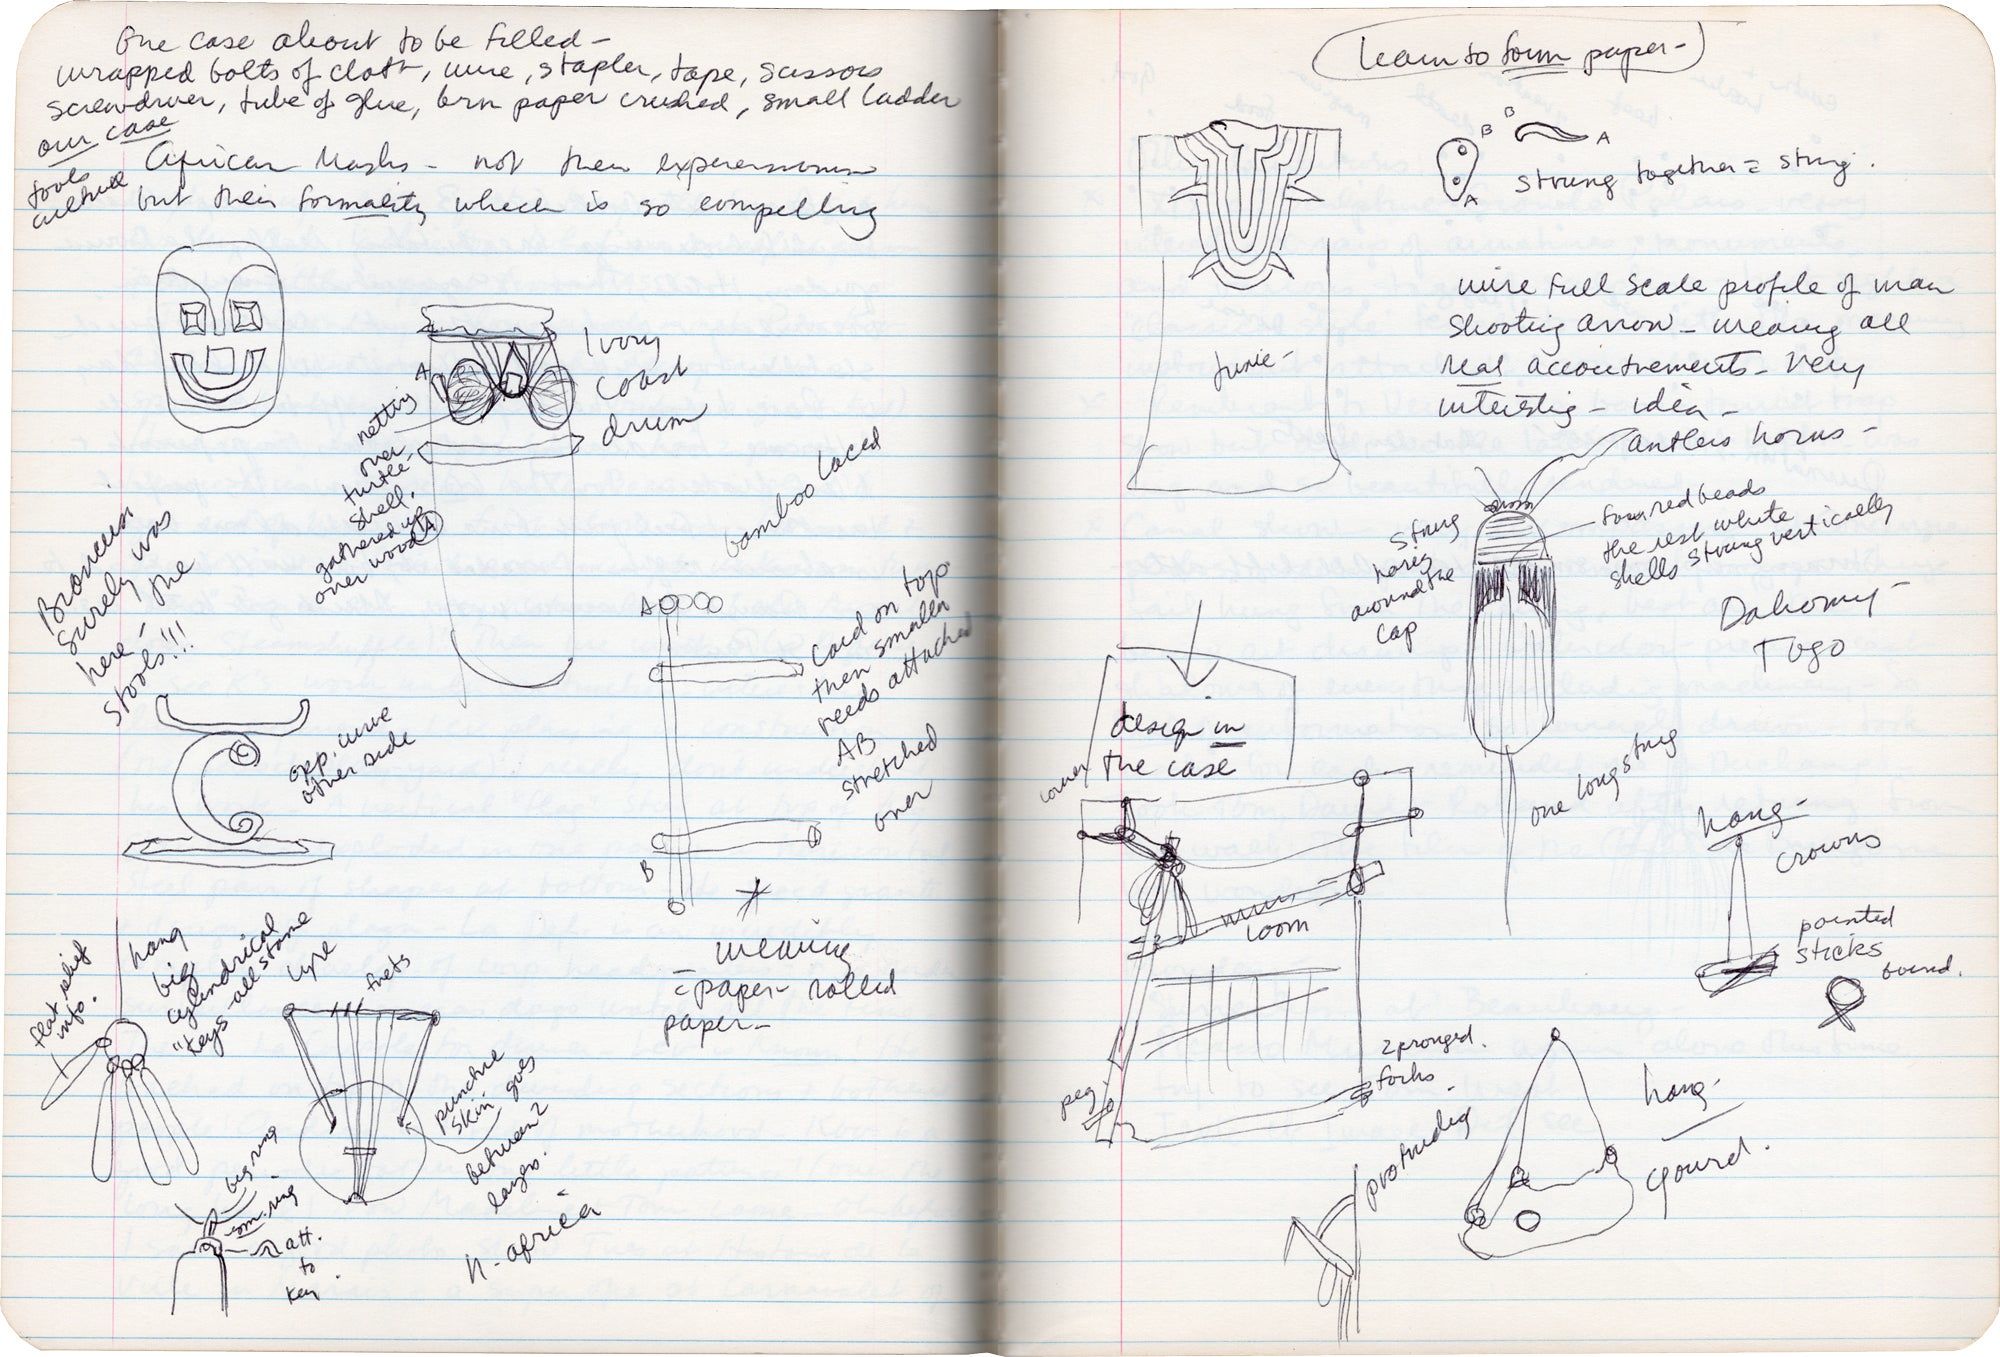 One case about to be filled -
wrapped bolts of cloth, wire, stapler, tape, scissors
screwdriver, tube of glue, brn paper crushed, small ladder
our case
tools
culture
African Masks - not their expressionism
but their formality which is so compelling
Ivory
Coast
drum
A
netting
over
turtle
shell.
gathered up
over wood A
Brancusi
surely was
here - the
stools!!!
opp. curve
other side
bamboo laced
A
Cord on top
then smaller
reeds attached
AB
stretched
over
B
weaving
= paper - rolled
paper -
flat relief
info.
hang
big
cylindrical
"keys - all stone
lyre
frets
puncture
skin goes
between 2
layers.
N. africa
big ring
sm. ring
att.
to
key
learn to form paper -
B
B
A
A
strung together = string.
tunic -
wire full scale profile of man
shooting arrow - wearing all
real accoutrements - very
interesting - idea -
antlers horns -
strung
horiz
around the
cap
four red beads
the rest white
shells strung vertically
Dahomy -
Togo
one long string
design in
the case
loom
peg
2 pronged.
forks.
protruding
hang -
crowns
pointed
sticks
bound.
hang -
gourd.